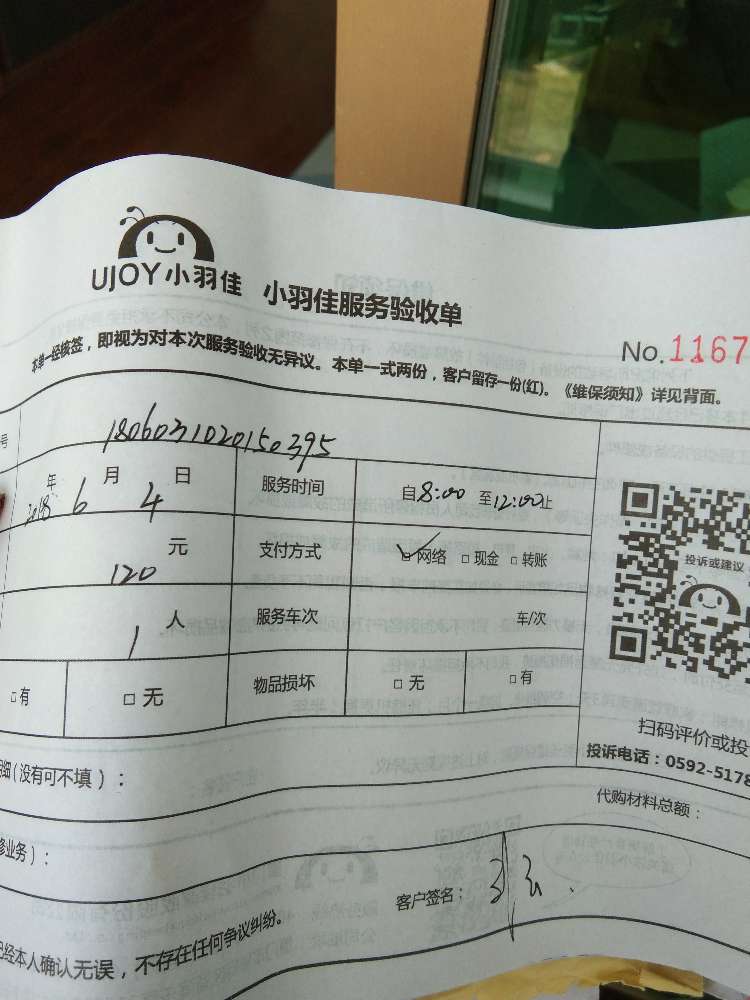 UJOY小羽佳 小羽佳服务验收单
No.1167
本单一经核签，即视为对本次服务验收无异议。本单一式两份，客户留存一份(红)。《维保须知》详见背面。
号 1806031020150395
2018年6月4日 服务时间 自8:00至12:00止
120元 支付方式 网络 现金 转账
投诉或建议
1人 服务车次 车/次
有 无 物品损坏 无 有
扫码评价或投
投诉电话：0592-5178
细(没有可不填)：
代购材料总额：
修业务)：
客户签名：
已经本人确认无误，不存在任何争议纠纷。